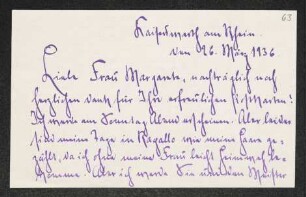 63
Kaiserswerth am Rhein
den 26. März 1936
Liebe Frau Margarete, nachträglich noch
herzlichen Dank für Ihre erfreulichen Postkarten!
Ich werde am Sonntag Abend erscheinen. Aber leider
sind meine Tage in Rapallo wie meine Haare ge-
zählt, da ich ohne meine Frau leicht Heimweh be-
komme. Aber ich werde Sie und den Meister